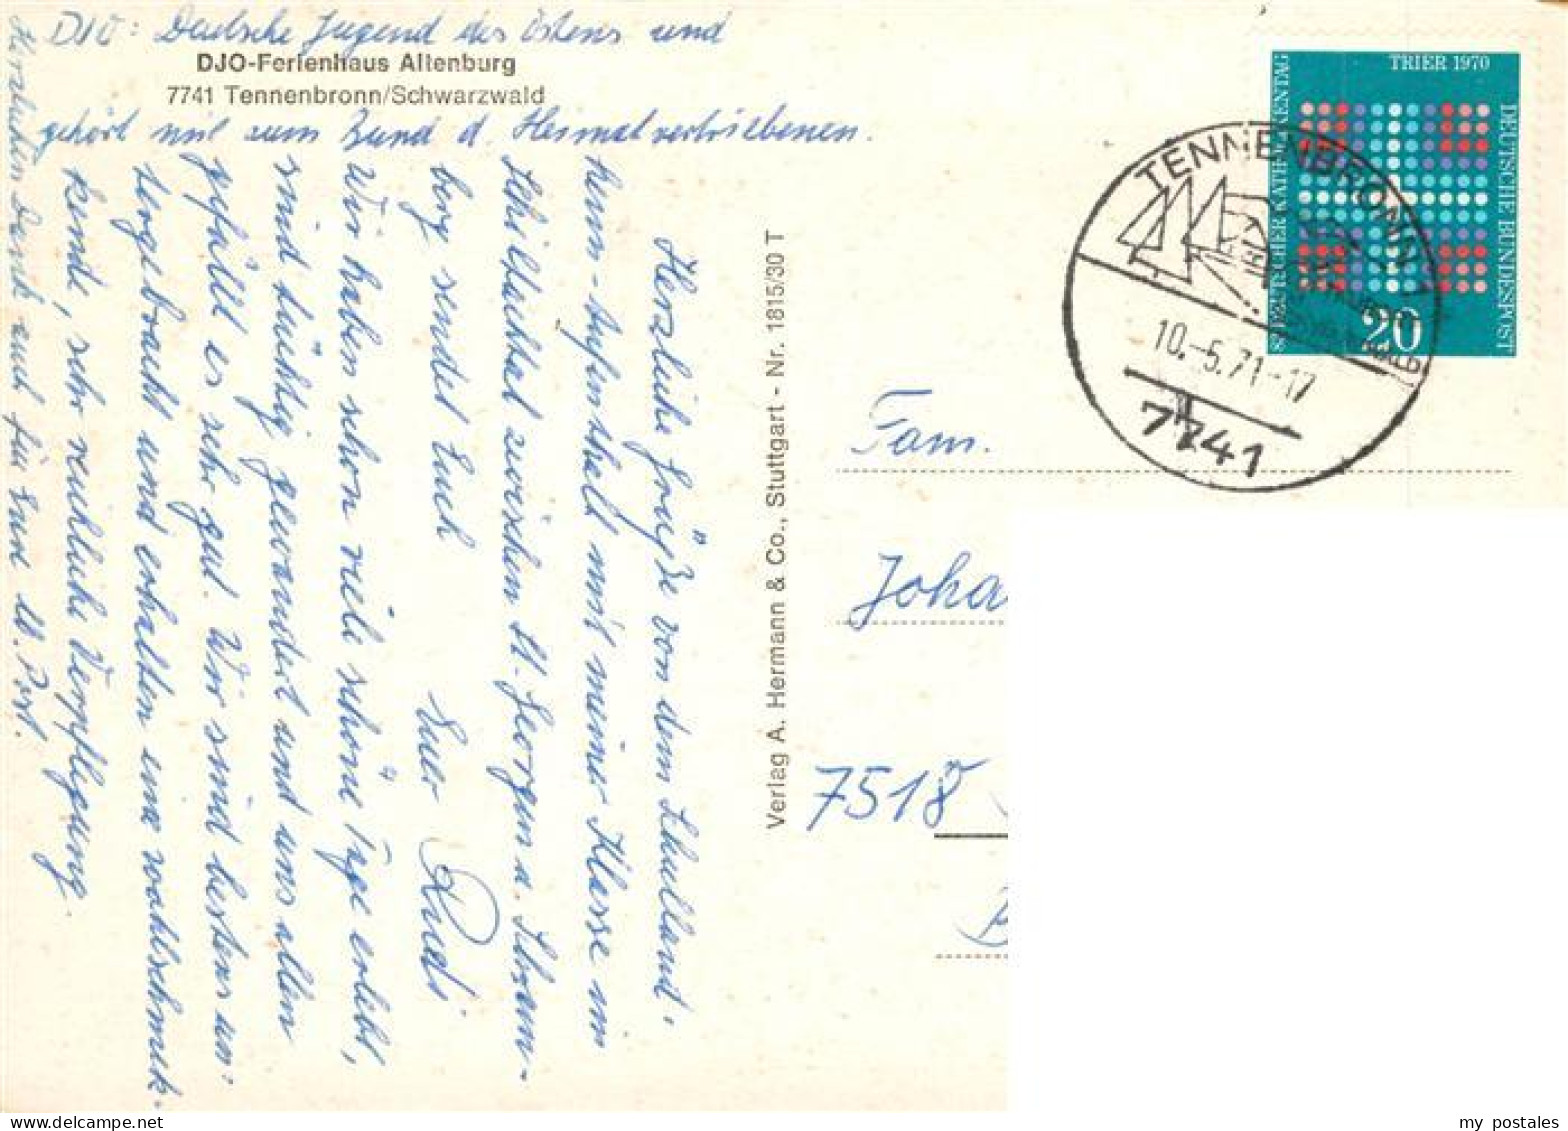 DJO: Deutsche Jugend des Ostens und
DJO-Ferienhaus Altenburg
7741 Tennenbronn/Schwarzwald
gehört mit zum Bund d. Heimatvertriebenen.
Herzliche Grüße von dem Schulland-
heim-Aufenthalt mit meiner Klasse im
Schiltachtal zwischen St. Georgen u. Schram-
berg sendet Euch
Euer Rudi
Wir haben schon viele schöne Tage erlebt,
sind tüchtig gewandert und uns allen
gefällt es sehr gut. Wir sind bestens un-
tergebracht und erhalten eine wohlschmek-
kende, sehr reichliche Verpflegung.
Herzlichen Dank auch für Eure lb. Post.
Verlag A. Hermann & Co., Stuttgart - Nr. 1815/30 T
TRIER 1970
DEUTSCHER KATHOLIKENTAG
DEUTSCHE BUNDESPOST
20
TENNENBRONN
10.-5.71-17
7741
Fam.
Joha
7518
B
my_postales